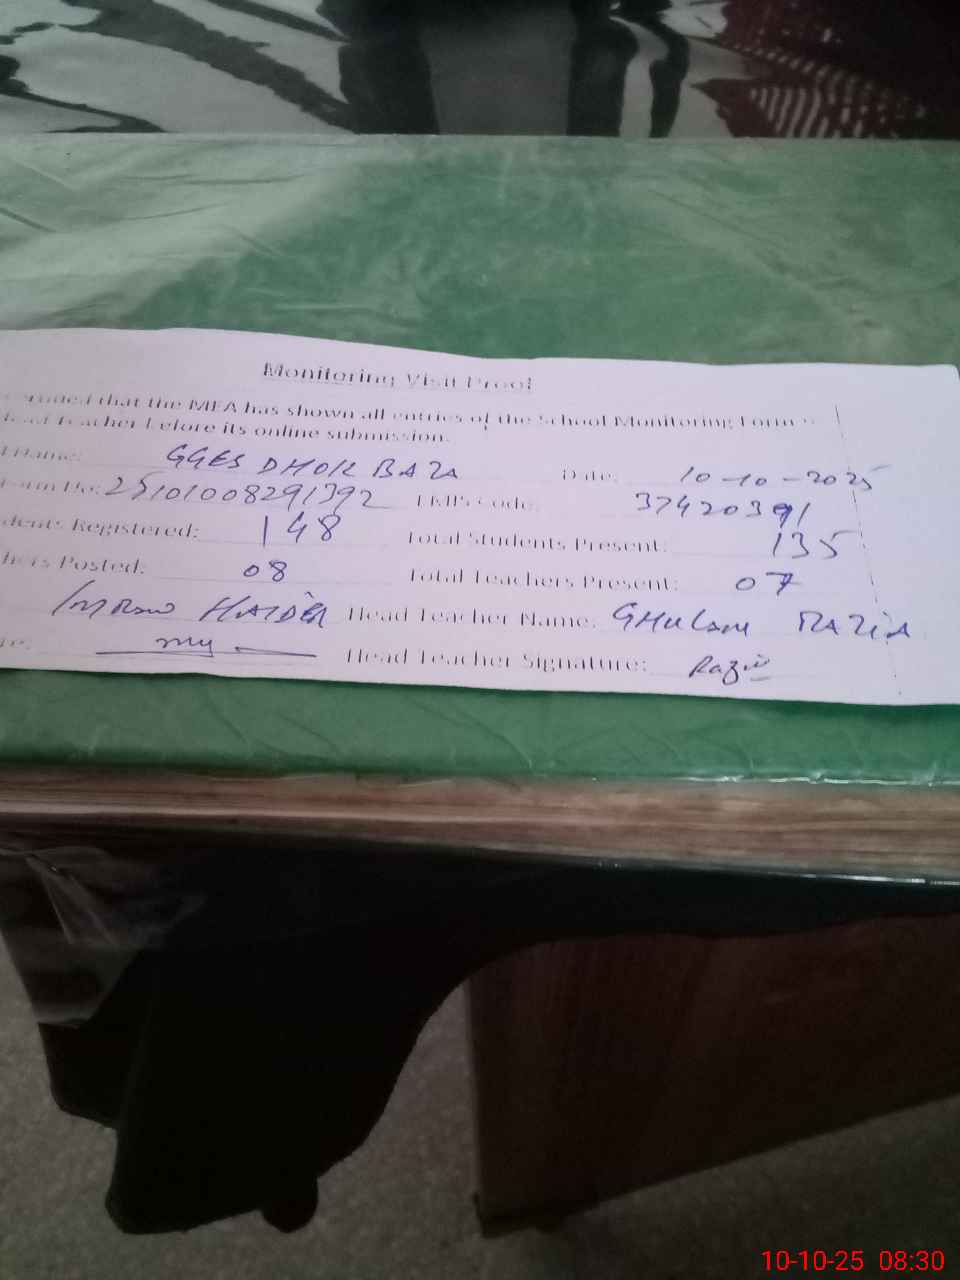 Monitoring Visit Proof
that the MEA has shown all entries of the School Monitoring Form
Teacher before its online submission.
Name: GGES DHOK BAZA Date: 10-10-2025
Form No: 25101008291392 EMIS Code: 37420391
dents Registered: 148 Total Students Present: 135
hers Posted: 08 Total Teachers Present: 07
Imran HAIDER Head Teacher Name: GHulam RAZiA
Head Teacher Signature: Razia
10-10-25 08:30